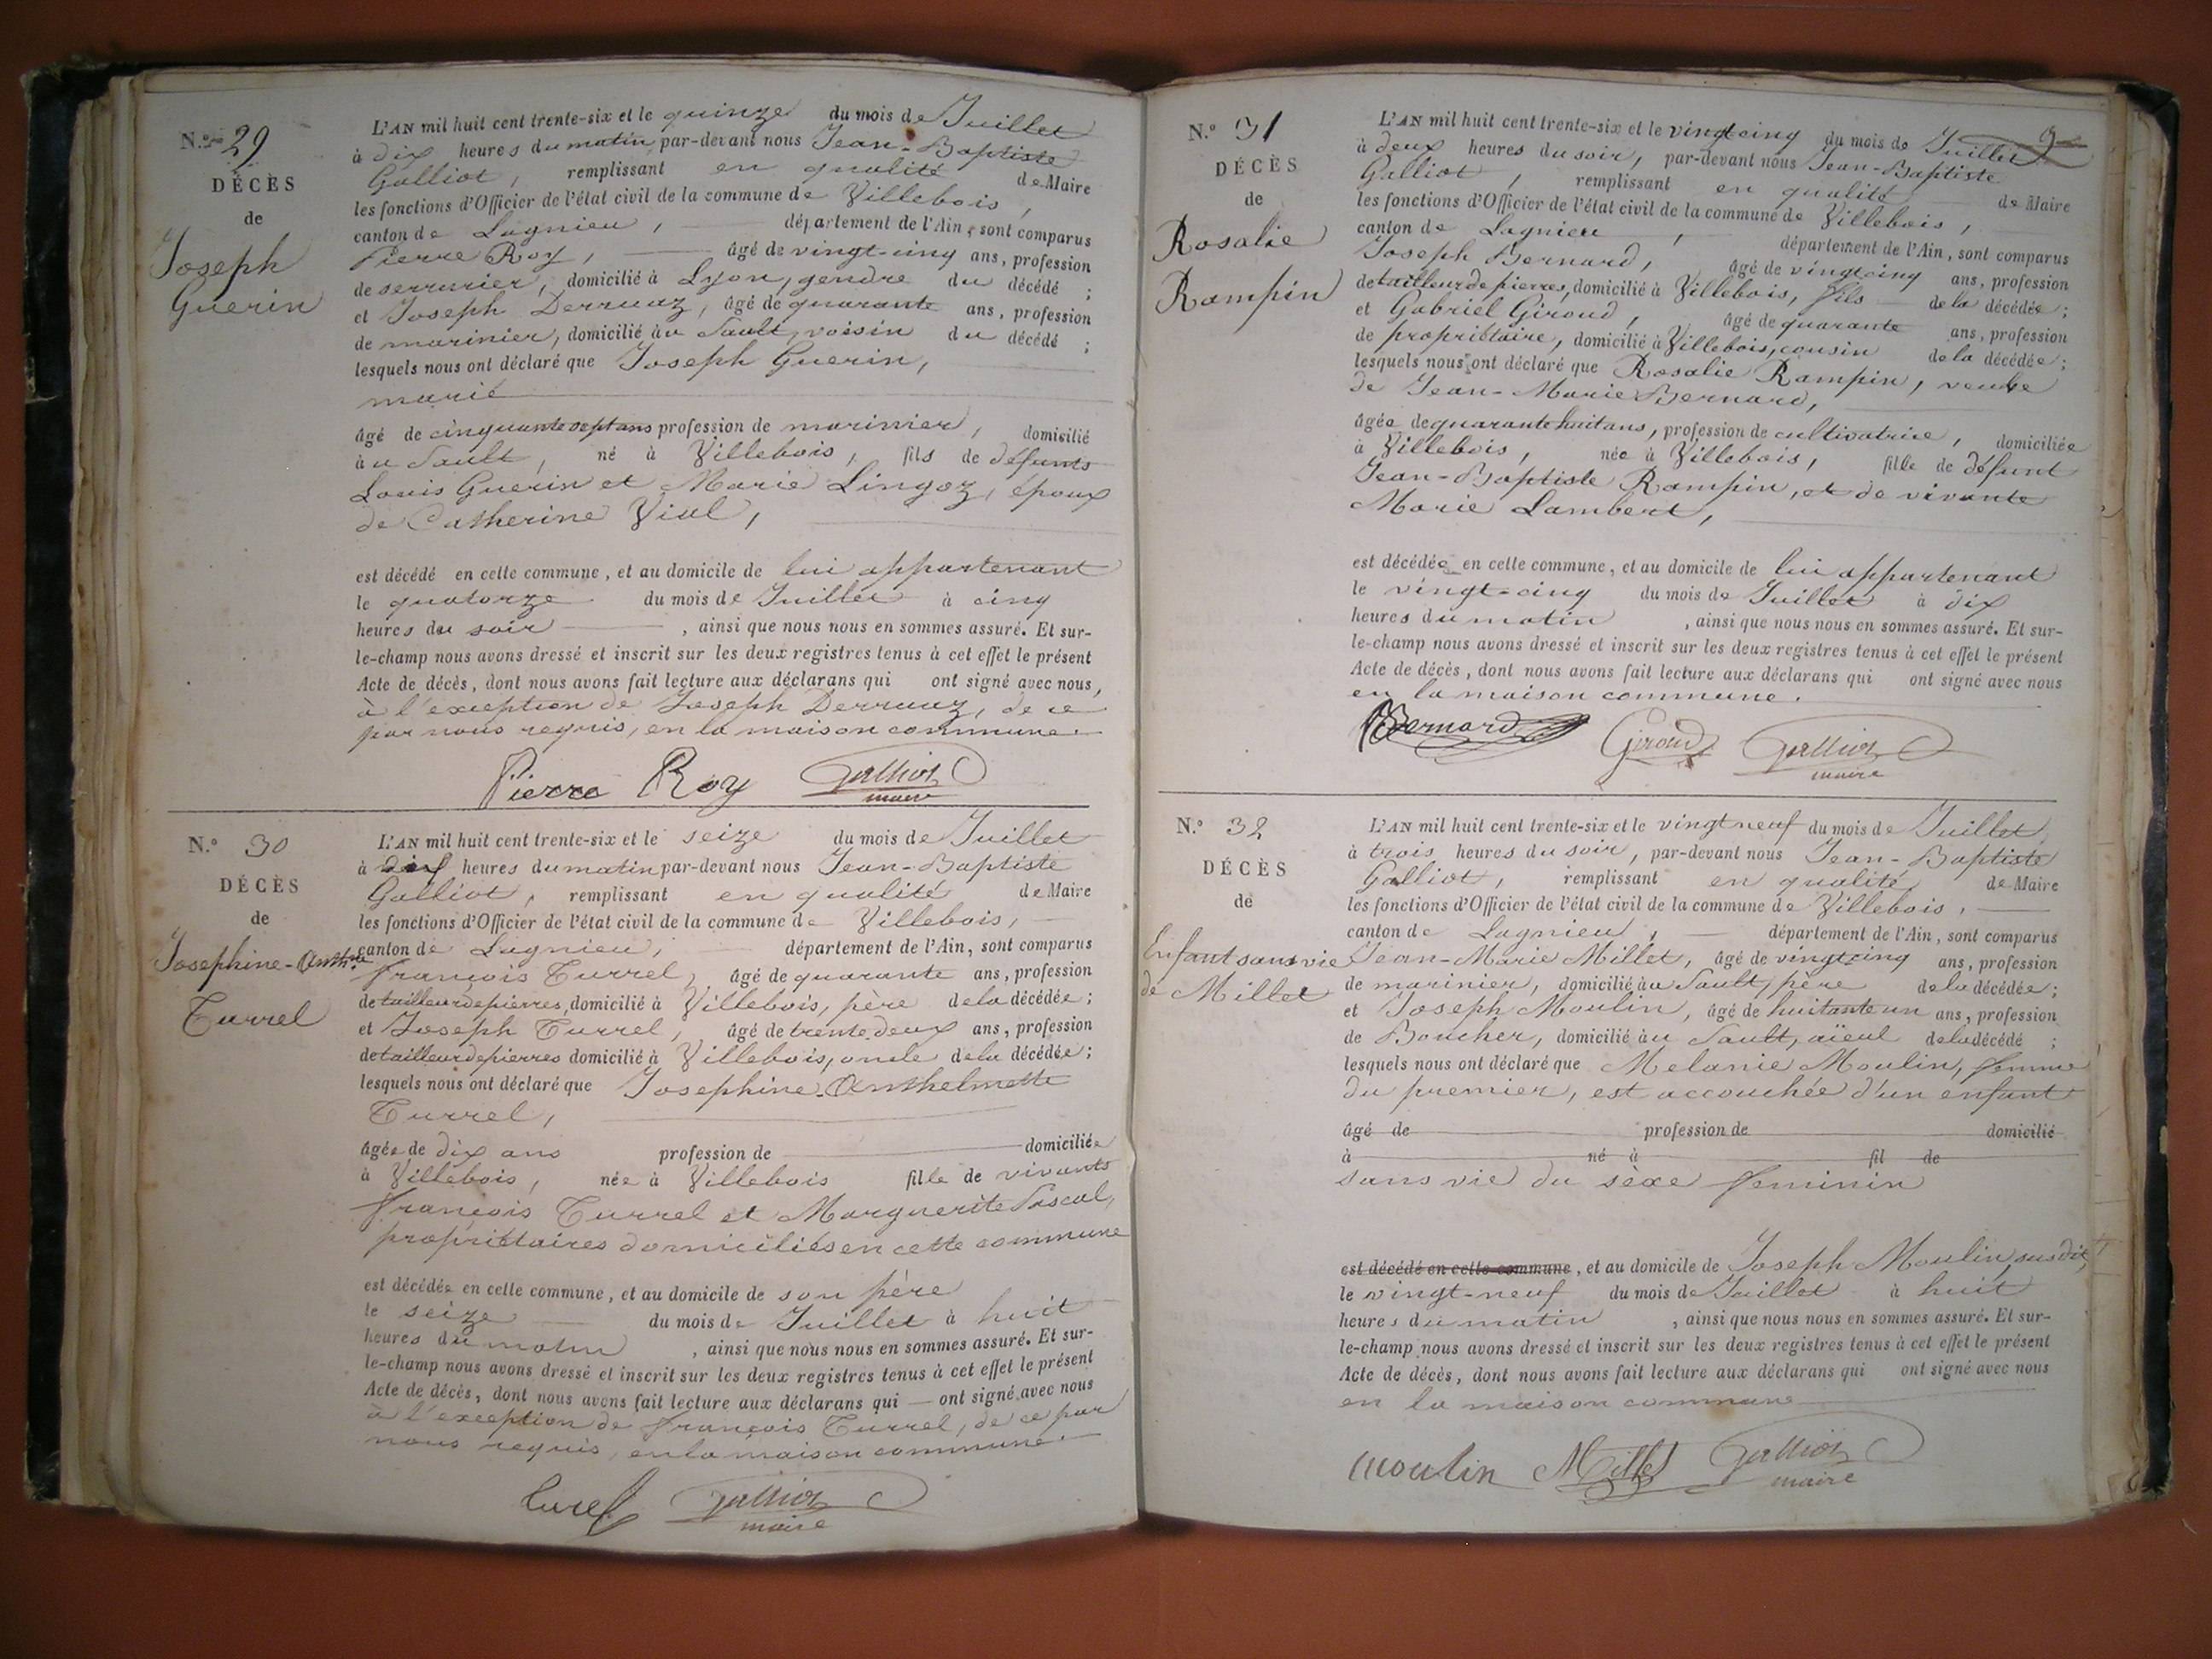 N.º 29
DÉCÈS
de
Joseph
Guerin
L'AN mil huit cent trente-six et le quinze du mois de Juillet
à dix heures du matin, par-devant nous Jean-Baptiste
Galliot, remplissant en qualité de Maire
les fonctions d'Officier de l'état civil de la commune de Villebois,
canton de Lagnieu, département de l'Ain, sont comparus
Pierre Roy, âgé de vingt-cinq ans, profession
de serrurier, domicilié à Lyon, gendre du décédé ;
et Joseph Derruaz, âgé de quarante ans, profession
de marinier, domicilié au Sault, voisin du décédé ;
lesquels nous ont déclaré que Joseph Guerin,
marié
âgé de cinquante sept ans profession de marinier, domicilié
au Sault, né à Villebois, fils de défunts
Louis Guerin et Marie Lingoz, époux
de Catherine Vial,
est décédé en cette commune, et au domicile de lui appartenant
le quatorze du mois de Juillet à cinq
heures du soir , ainsi que nous nous en sommes assuré. Et sur-
le-champ nous avons dressé et inscrit sur les deux registres tenus à cet effet le présent
Acte de décès, dont nous avons fait lecture aux déclarans qui ont signé avec nous,
à l'exception de Joseph Derruaz, de ce
par nous requis, en la maison commune.
Pierre Roy Galliot
maire
N.º 30
DÉCÈS
de
Josephine-Anth.te
Turrel
L'AN mil huit cent trente-six et le seize du mois de Juillet
à dix heures du matin par-devant nous Jean-Baptiste
Galliot, remplissant en qualité de Maire
les fonctions d'Officier de l'état civil de la commune de Villebois,
canton de Lagnieu, département de l'Ain, sont comparus
françois Turrel, âgé de quarante ans, profession
de tailleur de pierres, domicilié à Villebois, père de la décédée ;
et Joseph Turrel, âgé de trente deux ans, profession
de tailleur de pierres domicilié à Villebois, oncle de la décédée ;
lesquels nous ont déclaré que Josephine-Anthelmette
Turrel,
âgée de dix ans profession de domiciliée
à Villebois, née à Villebois fille de vivants
françois Turrel et Marguerite Pascal,
propriétaires domiciliés en cette commune
est décédée en cette commune, et au domicile de son père
le seize du mois de Juillet à huit
heures du matin , ainsi que nous nous en sommes assuré. Et sur-
le-champ nous avons dressé et inscrit sur les deux registres tenus à cet effet le présent
Acte de décès, dont nous avons fait lecture aux déclarans qui ont signé avec nous
à l'exception de françois Turrel, de ce par
nous requis, en la maison commune.
Turel Galliot
maire
N.º 31
DÉCÈS
de
Rosalie
Rampin
L'AN mil huit cent trente-six et le vingt cinq du mois de Juillet
à deux heures du soir, par-devant nous Jean-Baptiste
Galliot, remplissant en qualité de Maire
les fonctions d'Officier de l'état civil de la commune de Villebois,
canton de Lagnieu, département de l'Ain, sont comparus
Joseph Bernard, âgé de vingt cinq ans, profession
de tailleur de pierres, domicilié à Villebois, fils de la décédée ;
et Gabriel Giroud, âgé de quarante ans, profession
de propriétaire, domicilié à Villebois, cousin de la décédée ;
lesquels nous ont déclaré que Rosalie Rampin, veuve
de Jean-Marie Bernard,
âgée de quarante huit ans, profession de cultivatrice, domiciliée
à Villebois, née à Villebois, fille de défunt
Jean-Baptiste Rampin, et de vivante
Marie Lambert,
est décédée en cette commune, et au domicile de lui appartenant
le vingt-cinq du mois de Juillet à dix
heures du matin , ainsi que nous nous en sommes assuré. Et sur-
le-champ nous avons dressé et inscrit sur les deux registres tenus à cet effet le présent
Acte de décès, dont nous avons fait lecture aux déclarans qui ont signé avec nous
en la maison commune.
Bernard Giroud Galliot
maire
N.º 32
DÉCÈS
de
Enfant sans vie
de Millet
L'AN mil huit cent trente-six et le vingt neuf du mois de Juillet
à trois heures du soir, par-devant nous Jean-Baptiste
Galliot, remplissant en qualité de Maire
les fonctions d'Officier de l'état civil de la commune de Villebois,
canton de Lagnieu, département de l'Ain, sont comparus
Jean-Marie Millet, âgé de vingt cinq ans, profession
de marinier, domicilié au Sault, père de la décédée ;
et Joseph Moulin, âgé de huitante un ans, profession
de Boucher, domicilié au Sault, aïeul de la décédé ;
lesquels nous ont déclaré que Melanie Moulin, femme
du premier, est accouchée d'un enfant
âgé de profession de domicilié
à né à fil de
sans vie du sèxe feminin
est décédé en cette commune, et au domicile de Joseph Moulin, susdit,
le vingt-neuf du mois de Juillet à huit
heures du matin , ainsi que nous nous en sommes assuré. Et sur-
le-champ nous avons dressé et inscrit sur les deux registres tenus à cet effet le présent
Acte de décès, dont nous avons fait lecture aux déclarans qui ont signé avec nous
en la maison commune
Moulin Millet Galliot
maire